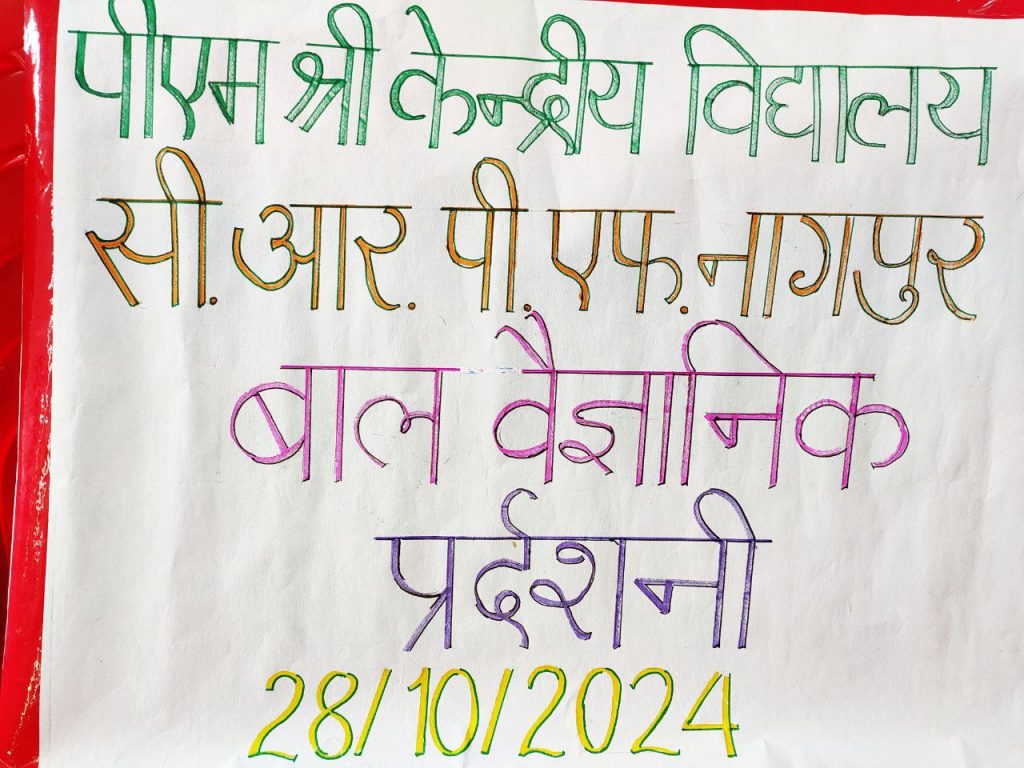 पीएम श्री केन्द्रीय विद्यालय
सी.आर.पी.एफ.नागपुर
बाल वैज्ञानिक
प्रर्दशनी
28/10/2024